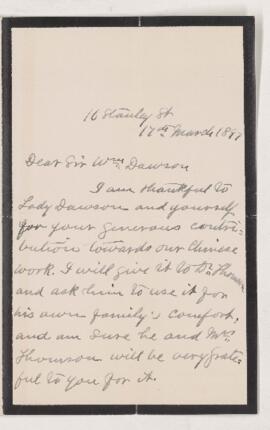 16 Stanley St
17th March 1897
Dear Sir Wm Dawson
I am thankful to
Lady Dawson and yourself
for your generous contri-
bution towards our Chinese
work. I will give it to Dr Thomson
and ask him to use it for
his own family's comfort,
and am sure he and Mrs
Thomson will be very grate-
ful to you for it.